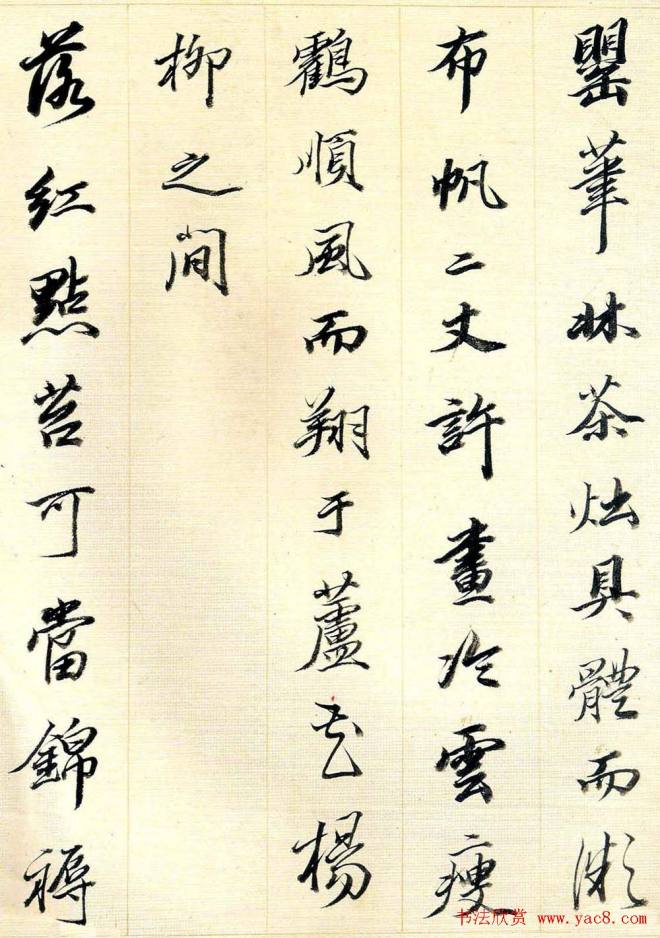 罌筆牀茶灶具體而微
布帆二丈許畫冷雲瘦
鶴順風而翔于蘆花楊
柳之間
落紅點苔可當錦褥
书法欣赏 www.yac8.com